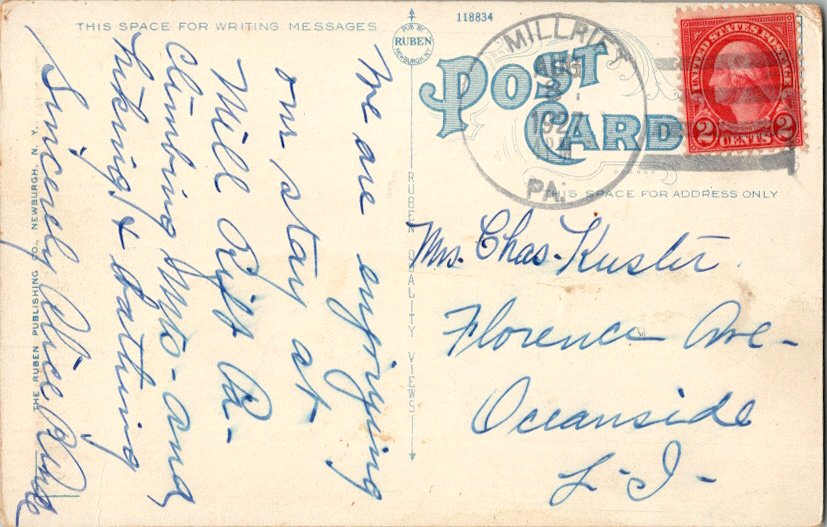 THIS SPACE FOR WRITING MESSAGES
We are enjoying
our stay at
Mill Rift Pa-
Climbing Mts- and
hiking & bathing
Sincerely Alice
THE RUBEN PUBLISHING CO., NEWBURGH, N. Y.
PUB. BY
RUBEN
NEWBURGH, N.Y.
RUBEN QUALITY VIEWS
118834
POST
CARD
MILLRIFT
AUG
PA.
UNITED STATES POSTAGE
2 CENTS 2
THIS SPACE FOR ADDRESS ONLY
Mrs. Chas- Kuster
Florence Ave-
Oceanside
L-I-